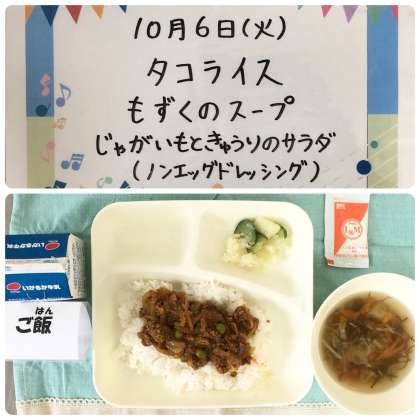 10月6日(火)
タコライス
もずくのスープ
じゃがいもときゅうりのサラダ
(ノンエッグドレッシング)
いかるが牛乳
いかるが牛乳
はん
ご飯